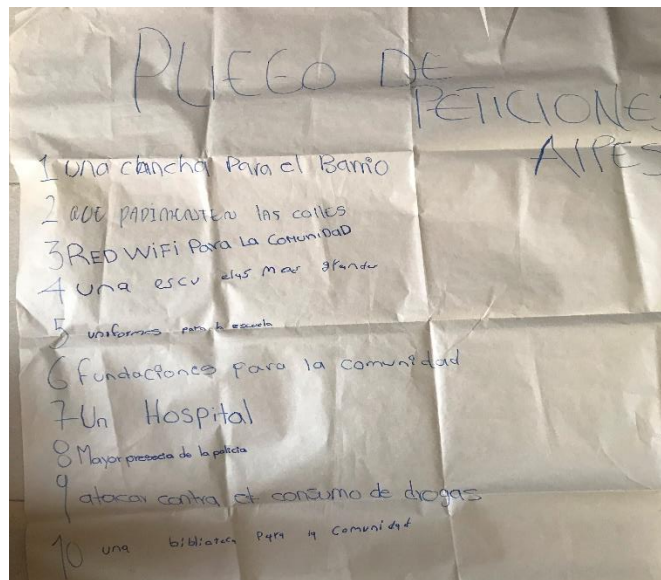 PLIEGO DE
PETICIONES
AIPES
1 Una cancha Para el Barrio
2 QUE PADIMENTEN las calles
3 RED WiFi Para La ComuniDaD
4 Una escu elas mas grande
5 uniformes para la escuela
6 fundaciones para la comunidad
7 Un Hospital
8 Mayor presecia de la policia
9 atacar contra el consumo de drogas
10 una biblioteca Para la Comunidad